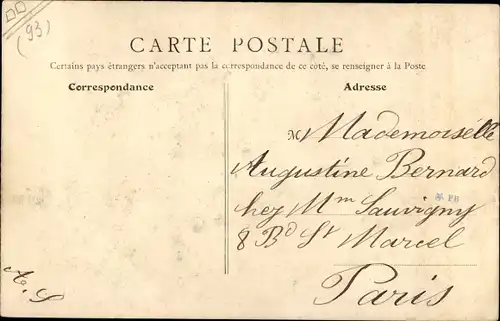 (93)
CARTE POSTALE
Certains pays étrangers n'acceptant pas la correspondance de ce côté, se renseigner à la Poste
Correspondance
Adresse
M Mademoiselle
Augustine Bernard
chez Mm Sauvigny
8 Bd St Marcel
Paris
A. S
PB